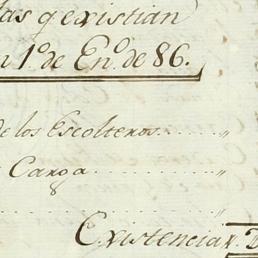 las q.e existian
n 1.º de En.º de 86.
de los Escolteros ......... „
Carga ............ „
Existencia